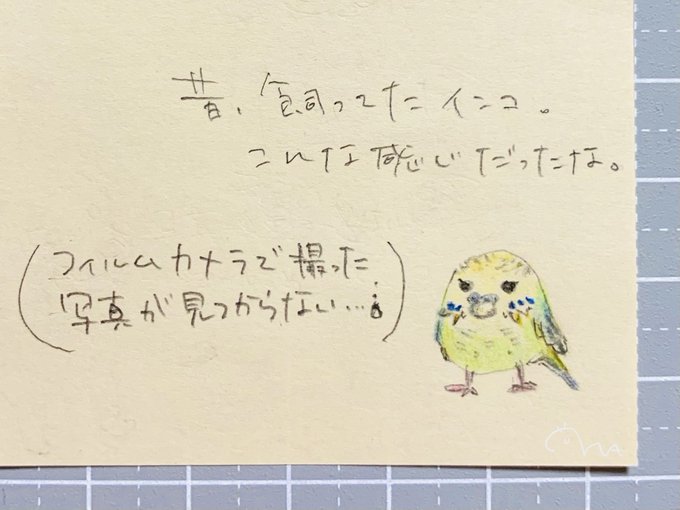 昔、飼ってたインコ。
こんな感じだったな。
(フィルムカメラで撮った
写真が見つからない…)